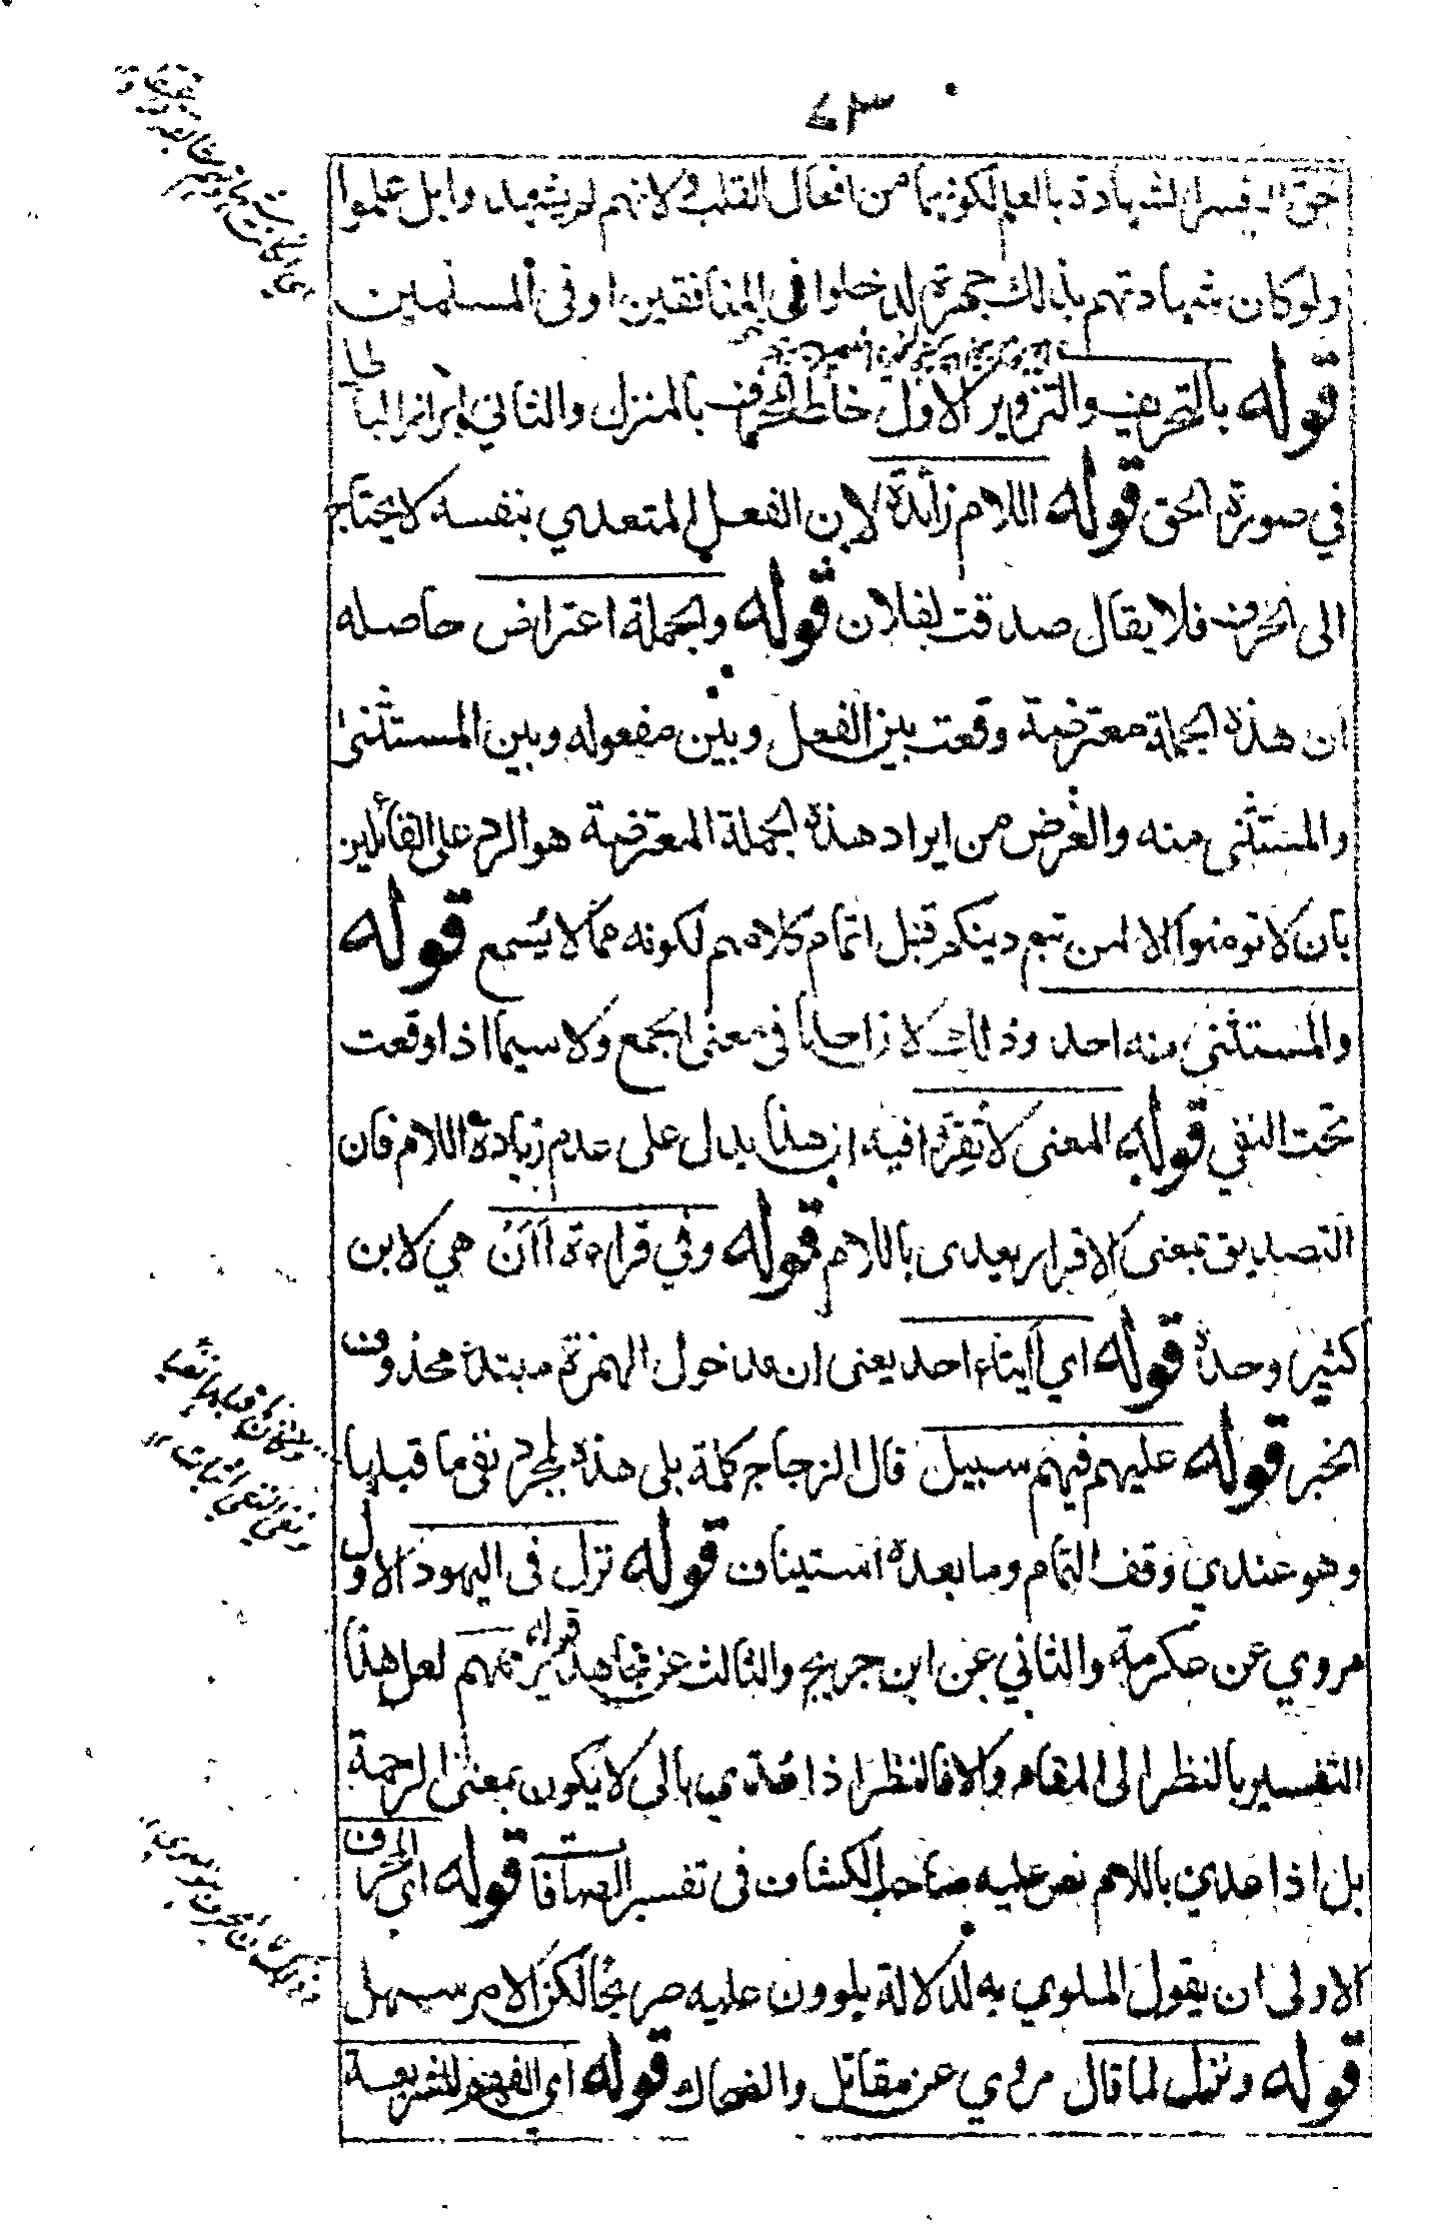 ٧٣
حق الخ فسر الشهادة بالعلم لكونهما من افعال القلب ولانهم لم يشهدوا بل علموا
ولو كان شهادتهم بذلك جهرة لدخلوا في المنافقين او في المسلمين
قوله بالتحريف والتزوير الاول خلط المحرف بالمنزل والثاني ابراز الباطل
في صورة الحق قوله اللام زائدة لان الفعل المتعدي بنفسه لا يحتاج
الى الحرف فلا يقال صدقت لفلان قوله والجملة اعتراض حاصله
ان هذه الجملة معترضة وقعت بين الفعل وبين مفعوله وبين المستثنى
والمستثنى منه والغرض من ايراد هذه الجملة المعترضة هو الرد على القائلين
بان لا تومنوا الا لمن تبع دينكم قبل اتمام كلامهم لكونه مما لا يسمع قوله
والمستثنى منه احد وذلك لان احدا في معنى الجمع ولا سيما اذا وقعت
تحت النفي قوله المعنى لا تقروا فيه ان هذا يدل على عدم زيادة اللام فان
التصديق بمعنى الاقرار يعدى باللام قوله وفي قراءة أأن هي لابن
كثير وحده قوله اي أايتاء احد يعنى ان مدخول الهمزة مبتدء محذوف
الخبر قوله عليهم فيهم سبيل قال الزجاج كلمة بلى هذه لمجرد نفى ما قبلها
وهو عندي وقف التمام وما بعده استيناف قوله نزل فى اليهود الاول
مروي عن عكرمة والثاني عن ابن جريج والثالث عن مجاهد قوله يرحمهم لعل هذا
التفسير بالنظر الى المقام والا فالنظر اذا عدي بالى لا يكون بمعنى الرحمة
بل اذا عدي باللام نص عليه صاحب الكشاف فى تفسير الصافات قوله اي المحرف
الاولى ان يقول الملوي به لدلالة يلوون عليه صريحا لكن الامر سهل
قوله ونزل لما قال مروي عن مقاتل والضحاك قوله اي الفهم للشريعة